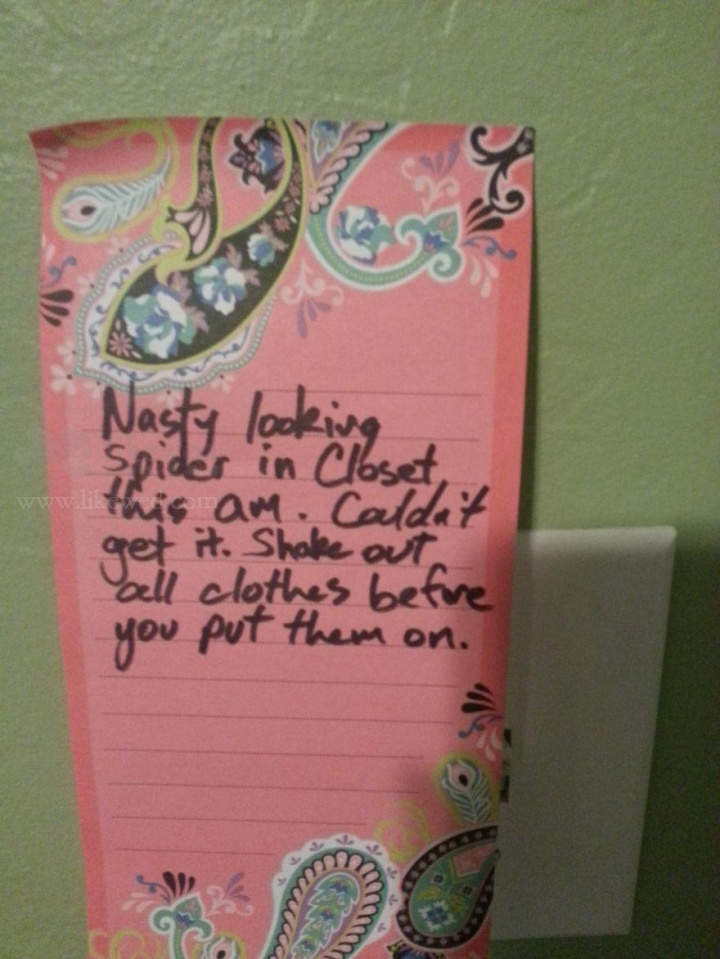 Nasty looking
Spider in Closet
this am. Couldn't
get it. Shake out
all clothes before
you put them on.
www.likewed.com